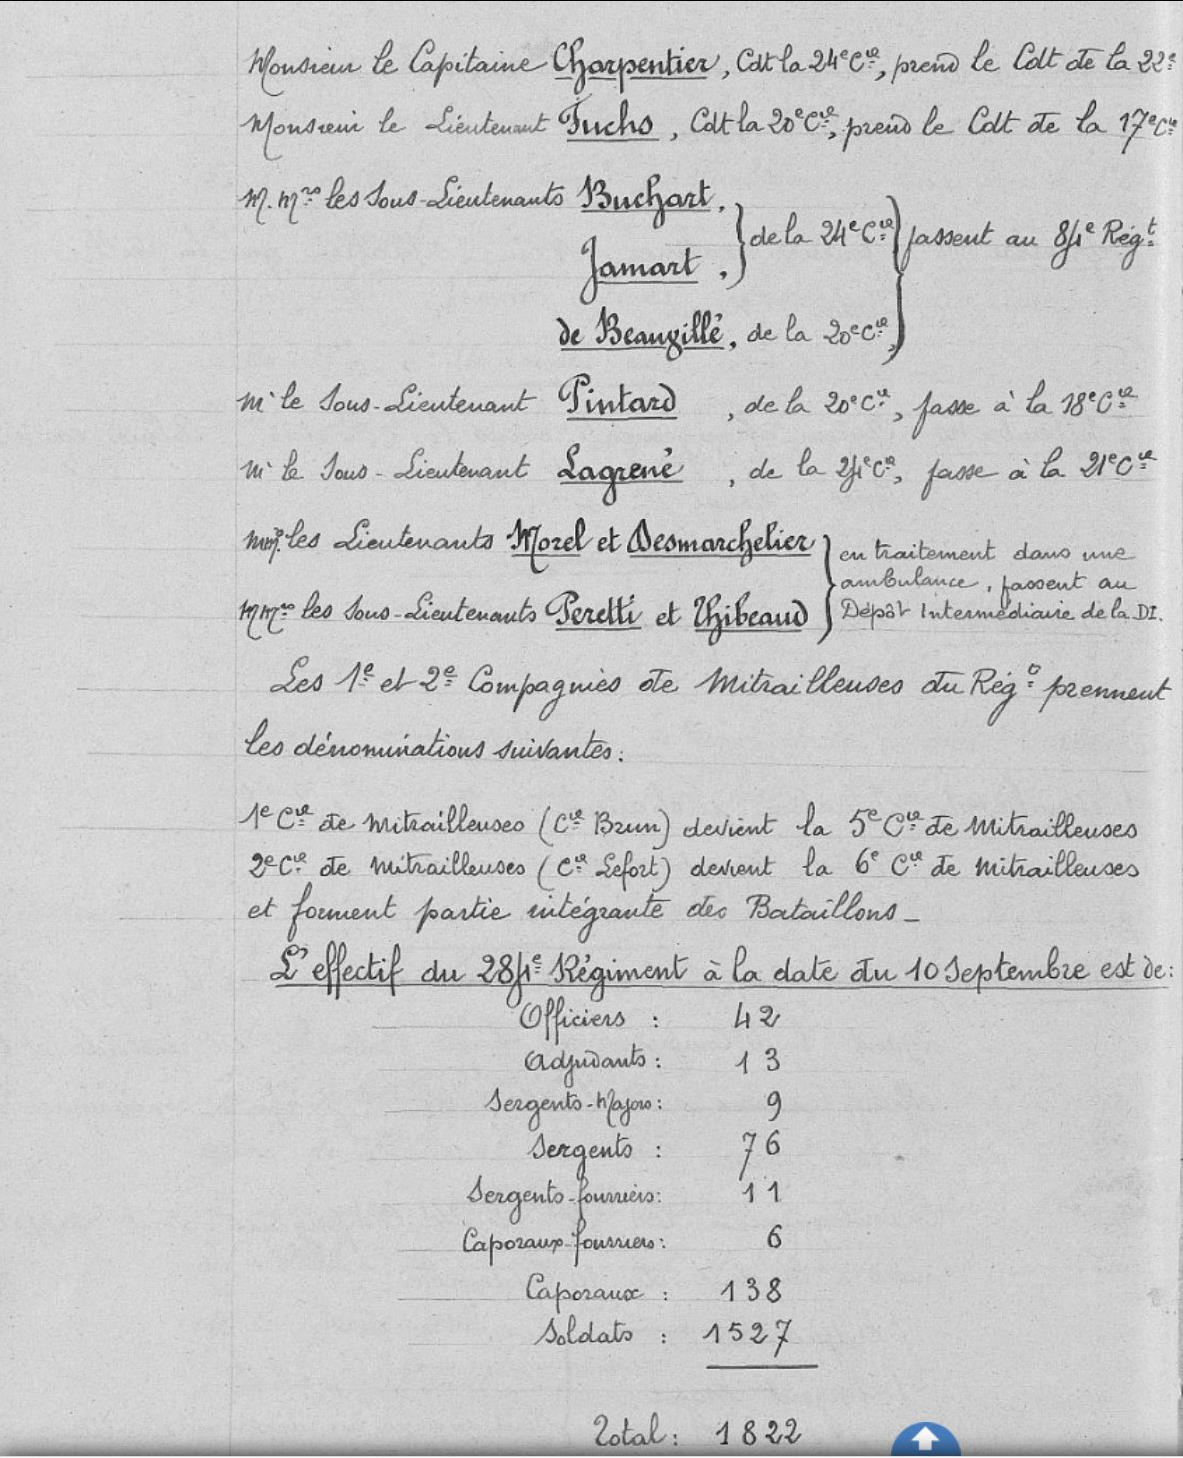 Monsieur le Capitaine Charpentier, Cdt la 24e Cie, prend le Cdt de la 22e
Monsieur le Lieutenant Fuchs, Cdt la 20e Cie, prend le Cdt de la 17e Cie
M.Mrs les Sous-Lieutenants Buchart,
Jamart, } de la 24e Cie } passent au 84e Régt
de Beaugillé, de la 20e Cie,
Mr le Sous-Lieutenant Pintard, de la 20e Cie, passe à la 18e Cie
Mr le Sous-Lieutenant Lagrené, de la 24e Cie, passe à la 21e Cie
MM. les Lieutenants Morel et Desmarchelier } en traitement dans une
ambulance, passent au
MMrs les Sous-Lieutenants Peretti et Thibeaud } Dépôt Intermédiaire de la DI.
Les 1e et 2e Compagnies de Mitrailleuses du Régt prennent
les dénominations suivantes:
1e Cie de Mitrailleuses (Cie Brun) devient la 5e Cie de Mitrailleuses
2e Cie de Mitrailleuses (Cie Lefort) devient la 6e Cie de Mitrailleuses
et forment partie intégrante des Bataillons_
L'effectif du 284e Régiment à la date du 10 Septembre est de:
Officiers : 42
Adjudants : 13
Sergents-Majors : 9
Sergents : 76
Sergents-fourriers : 11
Caporaux-fourriers : 6
Caporaux : 138
Soldats : 1527
Total : 1822